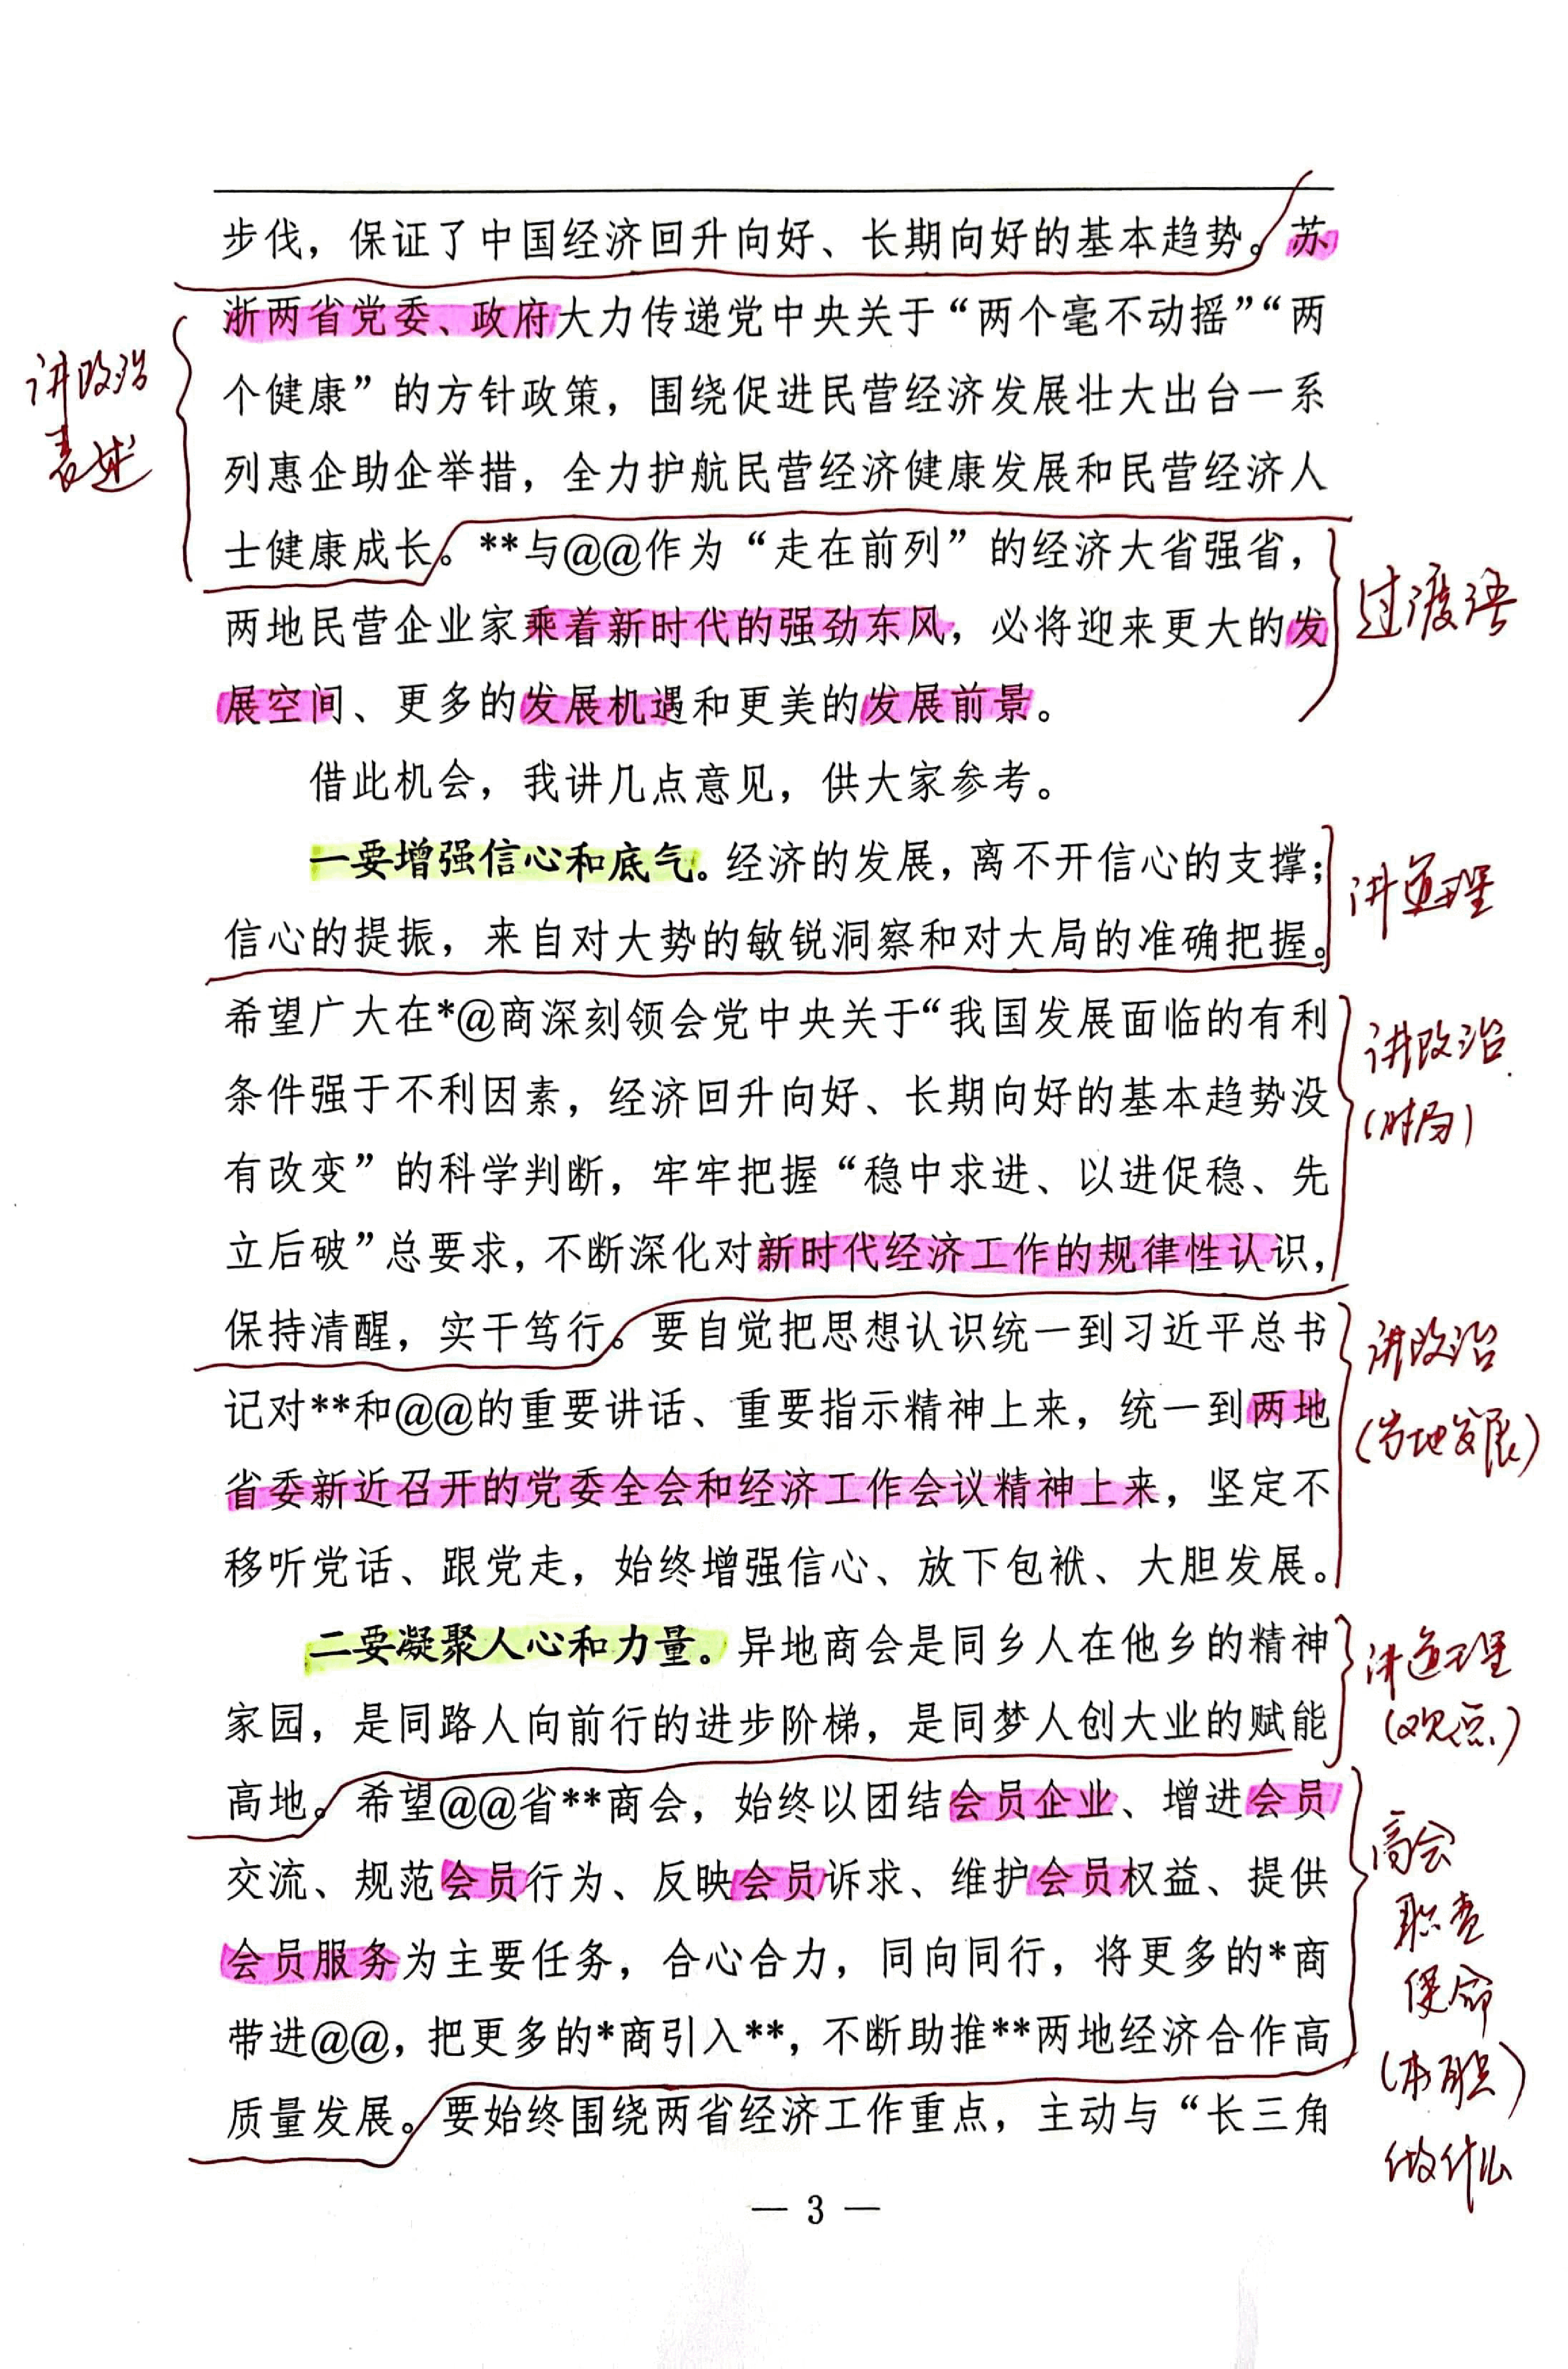 步伐，保证了中国经济回升向好、长期向好的基本趋势。苏
浙两省党委、政府大力传递党中央关于“两个毫不动摇”“两
个健康”的方针政策，围绕促进民营经济发展壮大出台一系
列惠企助企举措，全力护航民营经济健康发展和民营经济人
士健康成长。**与@@作为“走在前列”的经济大省强省，
两地民营企业家乘着新时代的强劲东风，必将迎来更大的发
展空间、更多的发展机遇和更美的发展前景。
讲政治
表述
过渡语
借此机会，我讲几点意见，供大家参考。
一要增强信心和底气。经济的发展，离不开信心的支撑；
信心的提振，来自对大势的敏锐洞察和对大局的准确把握。
讲道理
希望广大在*@商深刻领会党中央关于“我国发展面临的有利
条件强于不利因素，经济回升向好、长期向好的基本趋势没
有改变”的科学判断，牢牢把握“稳中求进、以进促稳、先
立后破”总要求，不断深化对新时代经济工作的规律性认识，
保持清醒，实干笃行。要自觉把思想认识统一到习近平总书
记对**和@@的重要讲话、重要指示精神上来，统一到两地
省委新近召开的党委全会和经济工作会议精神上来，坚定不
移听党话、跟党走，始终增强信心、放下包袱、大胆发展。
讲政治
（时局）
讲政治
（当地发展）
二要凝聚人心和力量。异地商会是同乡人在他乡的精神
家园，是同路人向前行的进步阶梯，是同梦人创大业的赋能
高地。希望@@省**商会，始终以团结会员企业、增进会员
交流、规范会员行为、反映会员诉求、维护会员权益、提供
会员服务为主要任务，合心合力，同向同行，将更多的*商
带进@@，把更多的*商引入**，不断助推**两地经济合作高
质量发展。要始终围绕两省经济工作重点，主动与“长三角
讲道理
（观点）
商会
职责
使命
（本职）
做什么
— 3 —